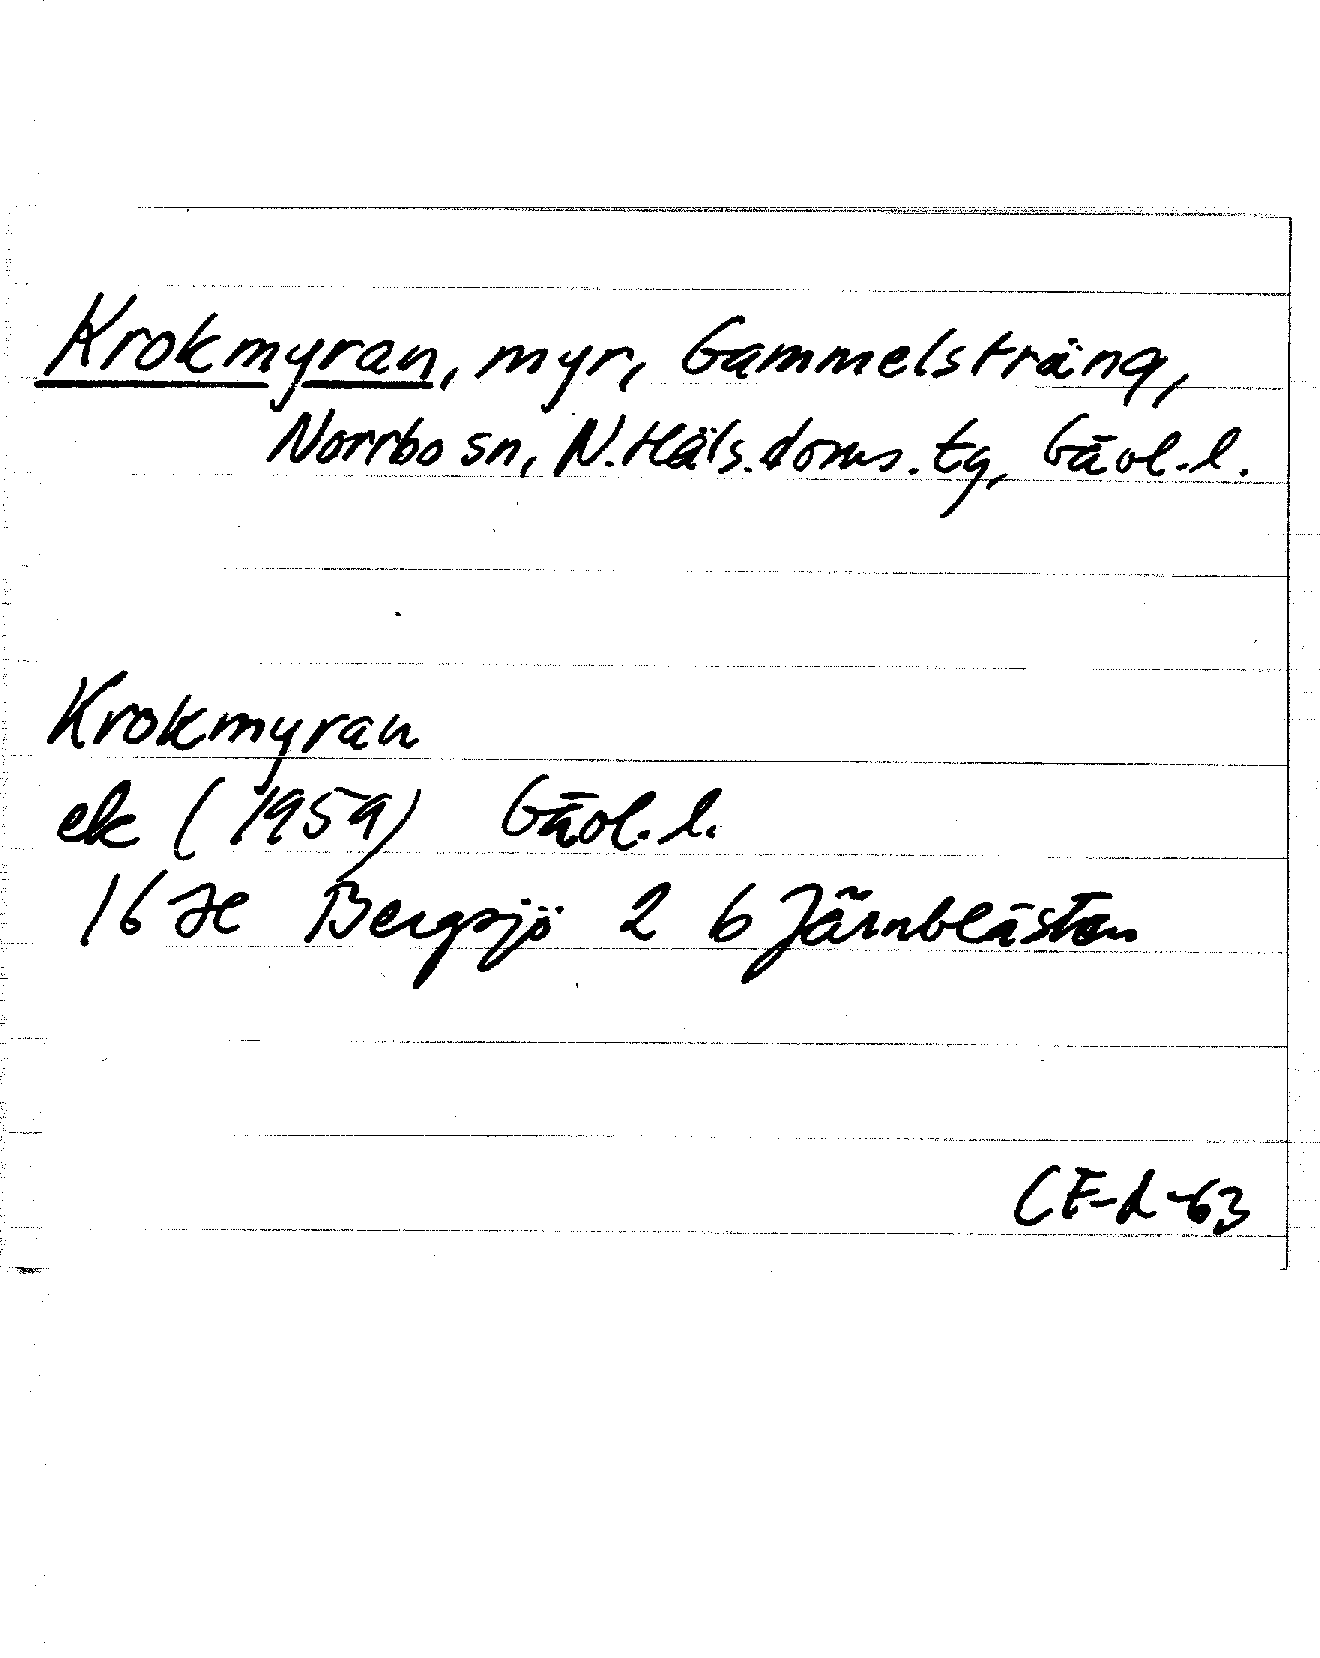 Krokmyran, myr, Gammelsträng,
Norrbo sn, N.Häls.doms.tg, Gävl.l.
Krokmyran
ek (1959) Gävl.l.
16 H Bergsjö 2 b Järnblästen
CE-L-63